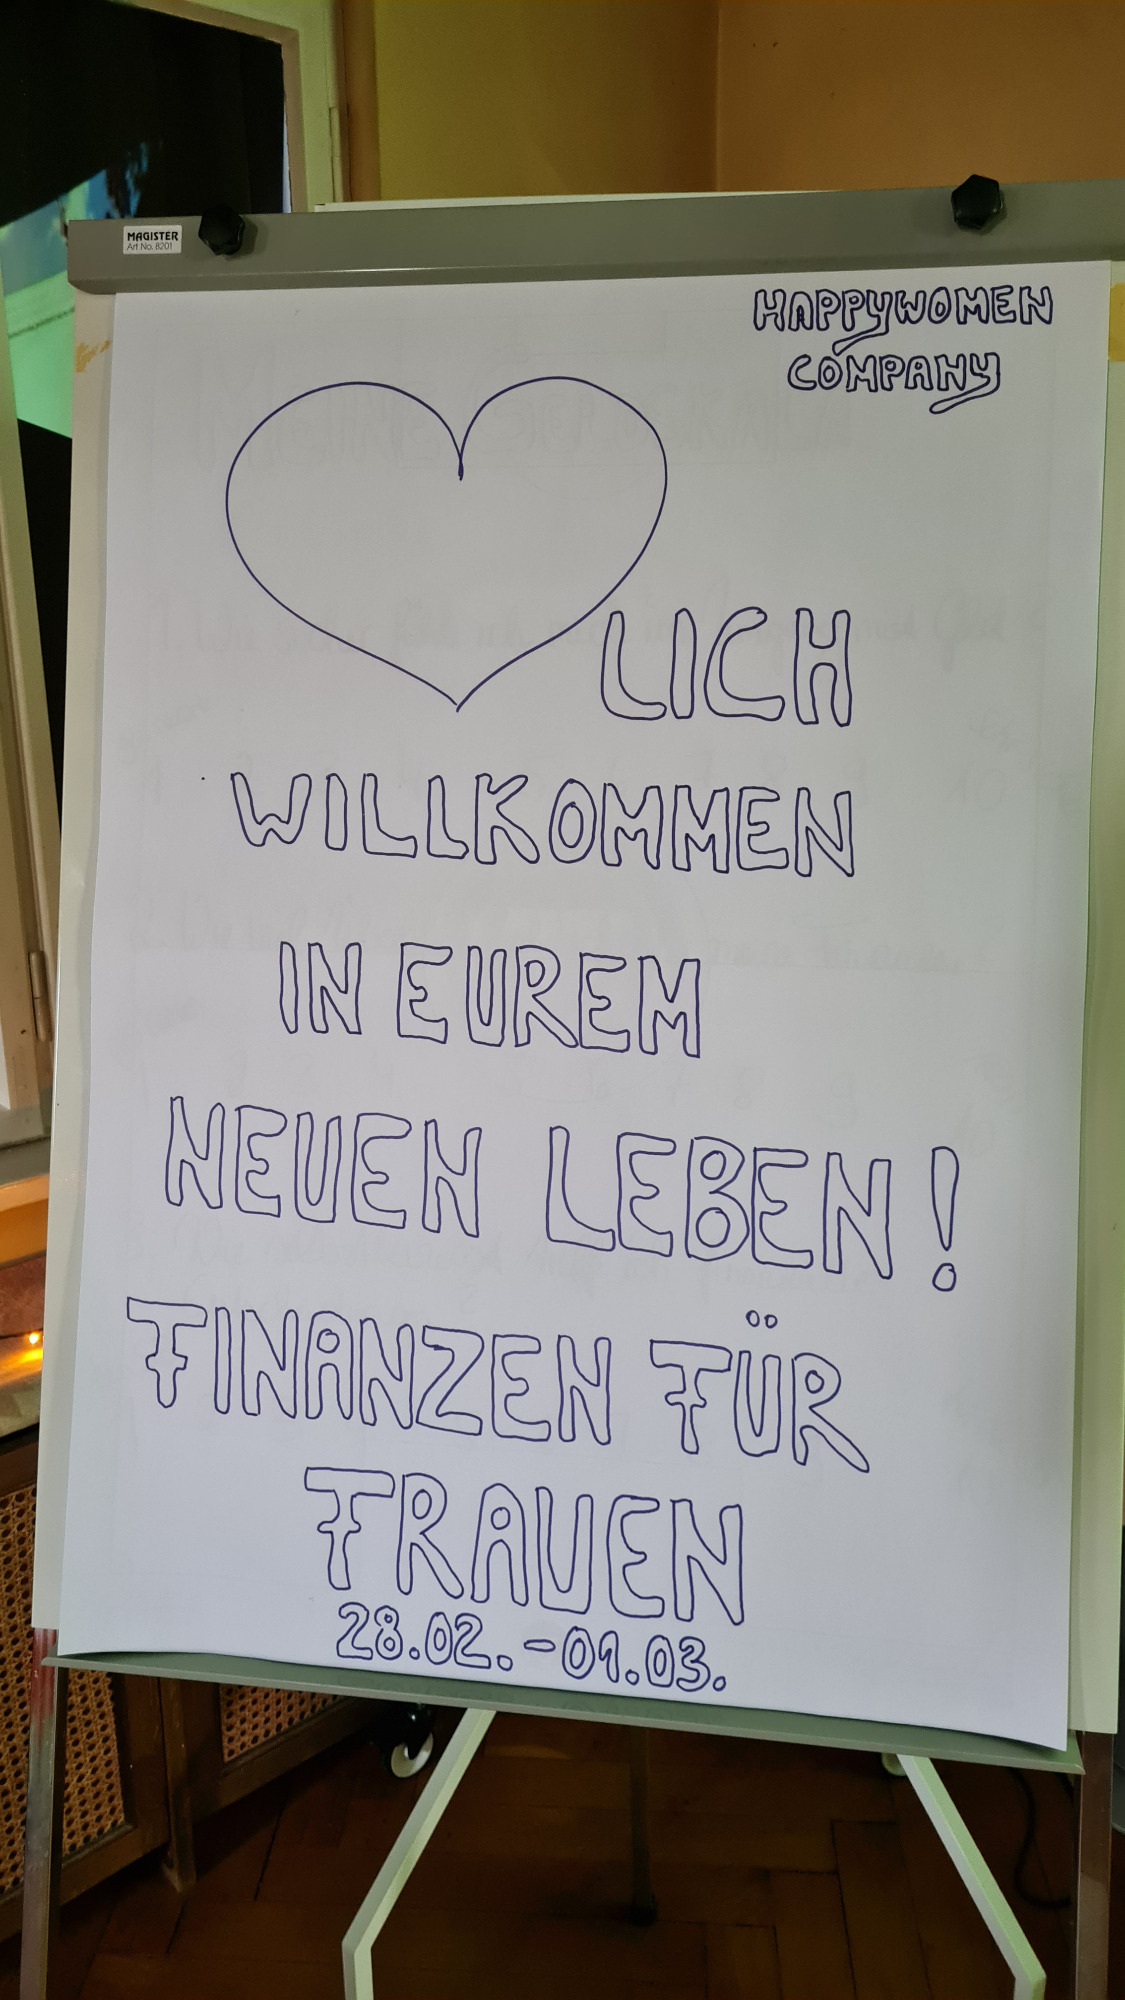 MAGISTER
Art No. 8201
HAPPYWOMEN
COMPANY
LICH
WILLKOMMEN
IN EUREM
NEUEN LEBEN!
FINANZEN FÜR
FRAUEN
28.02.-01.03.